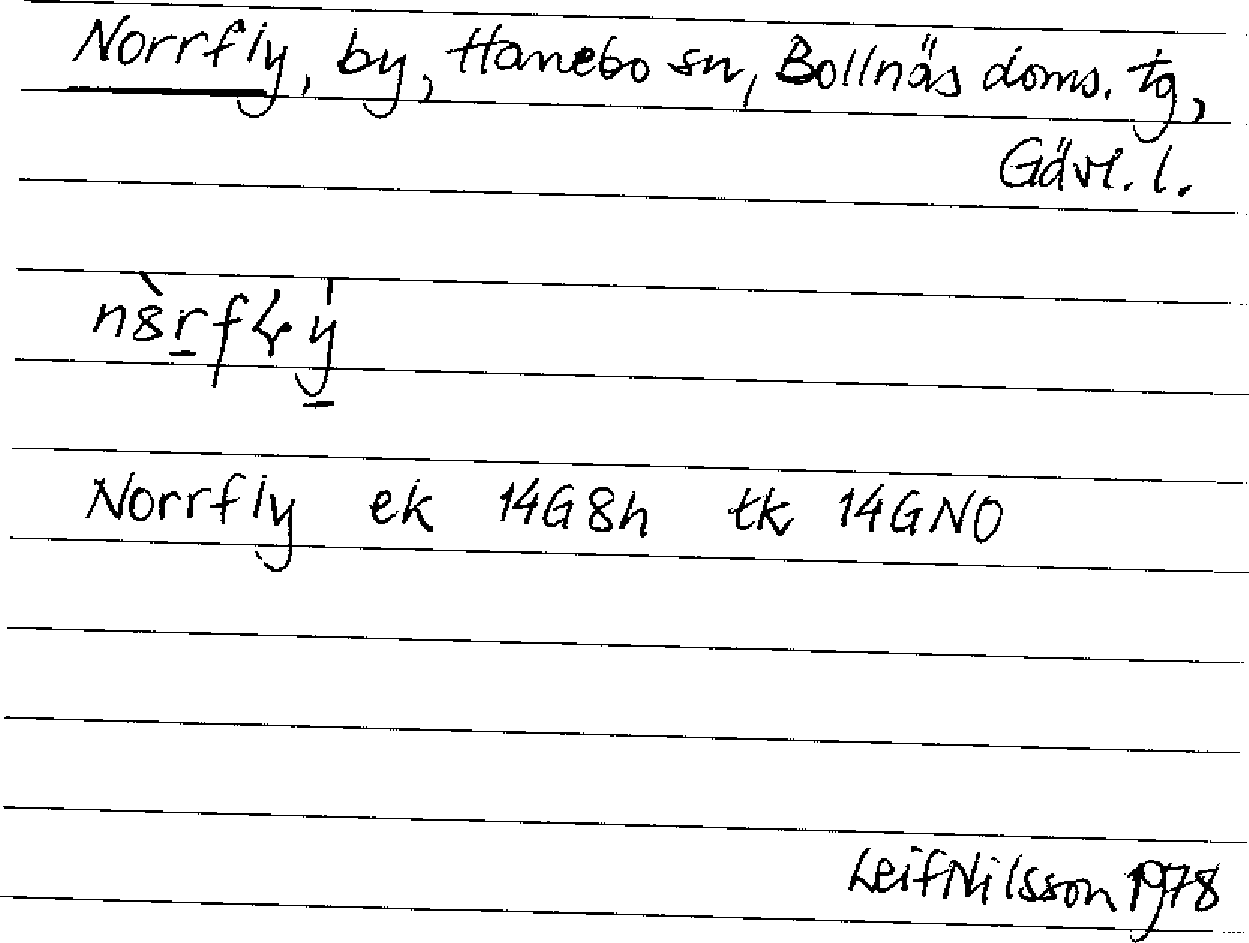 Norrfly, by, Hanebo sn, Bollnäs doms. tg,
Gävl. l.
Norrfly ek 14G8h tk 14GNO
Leif Nilsson 1978